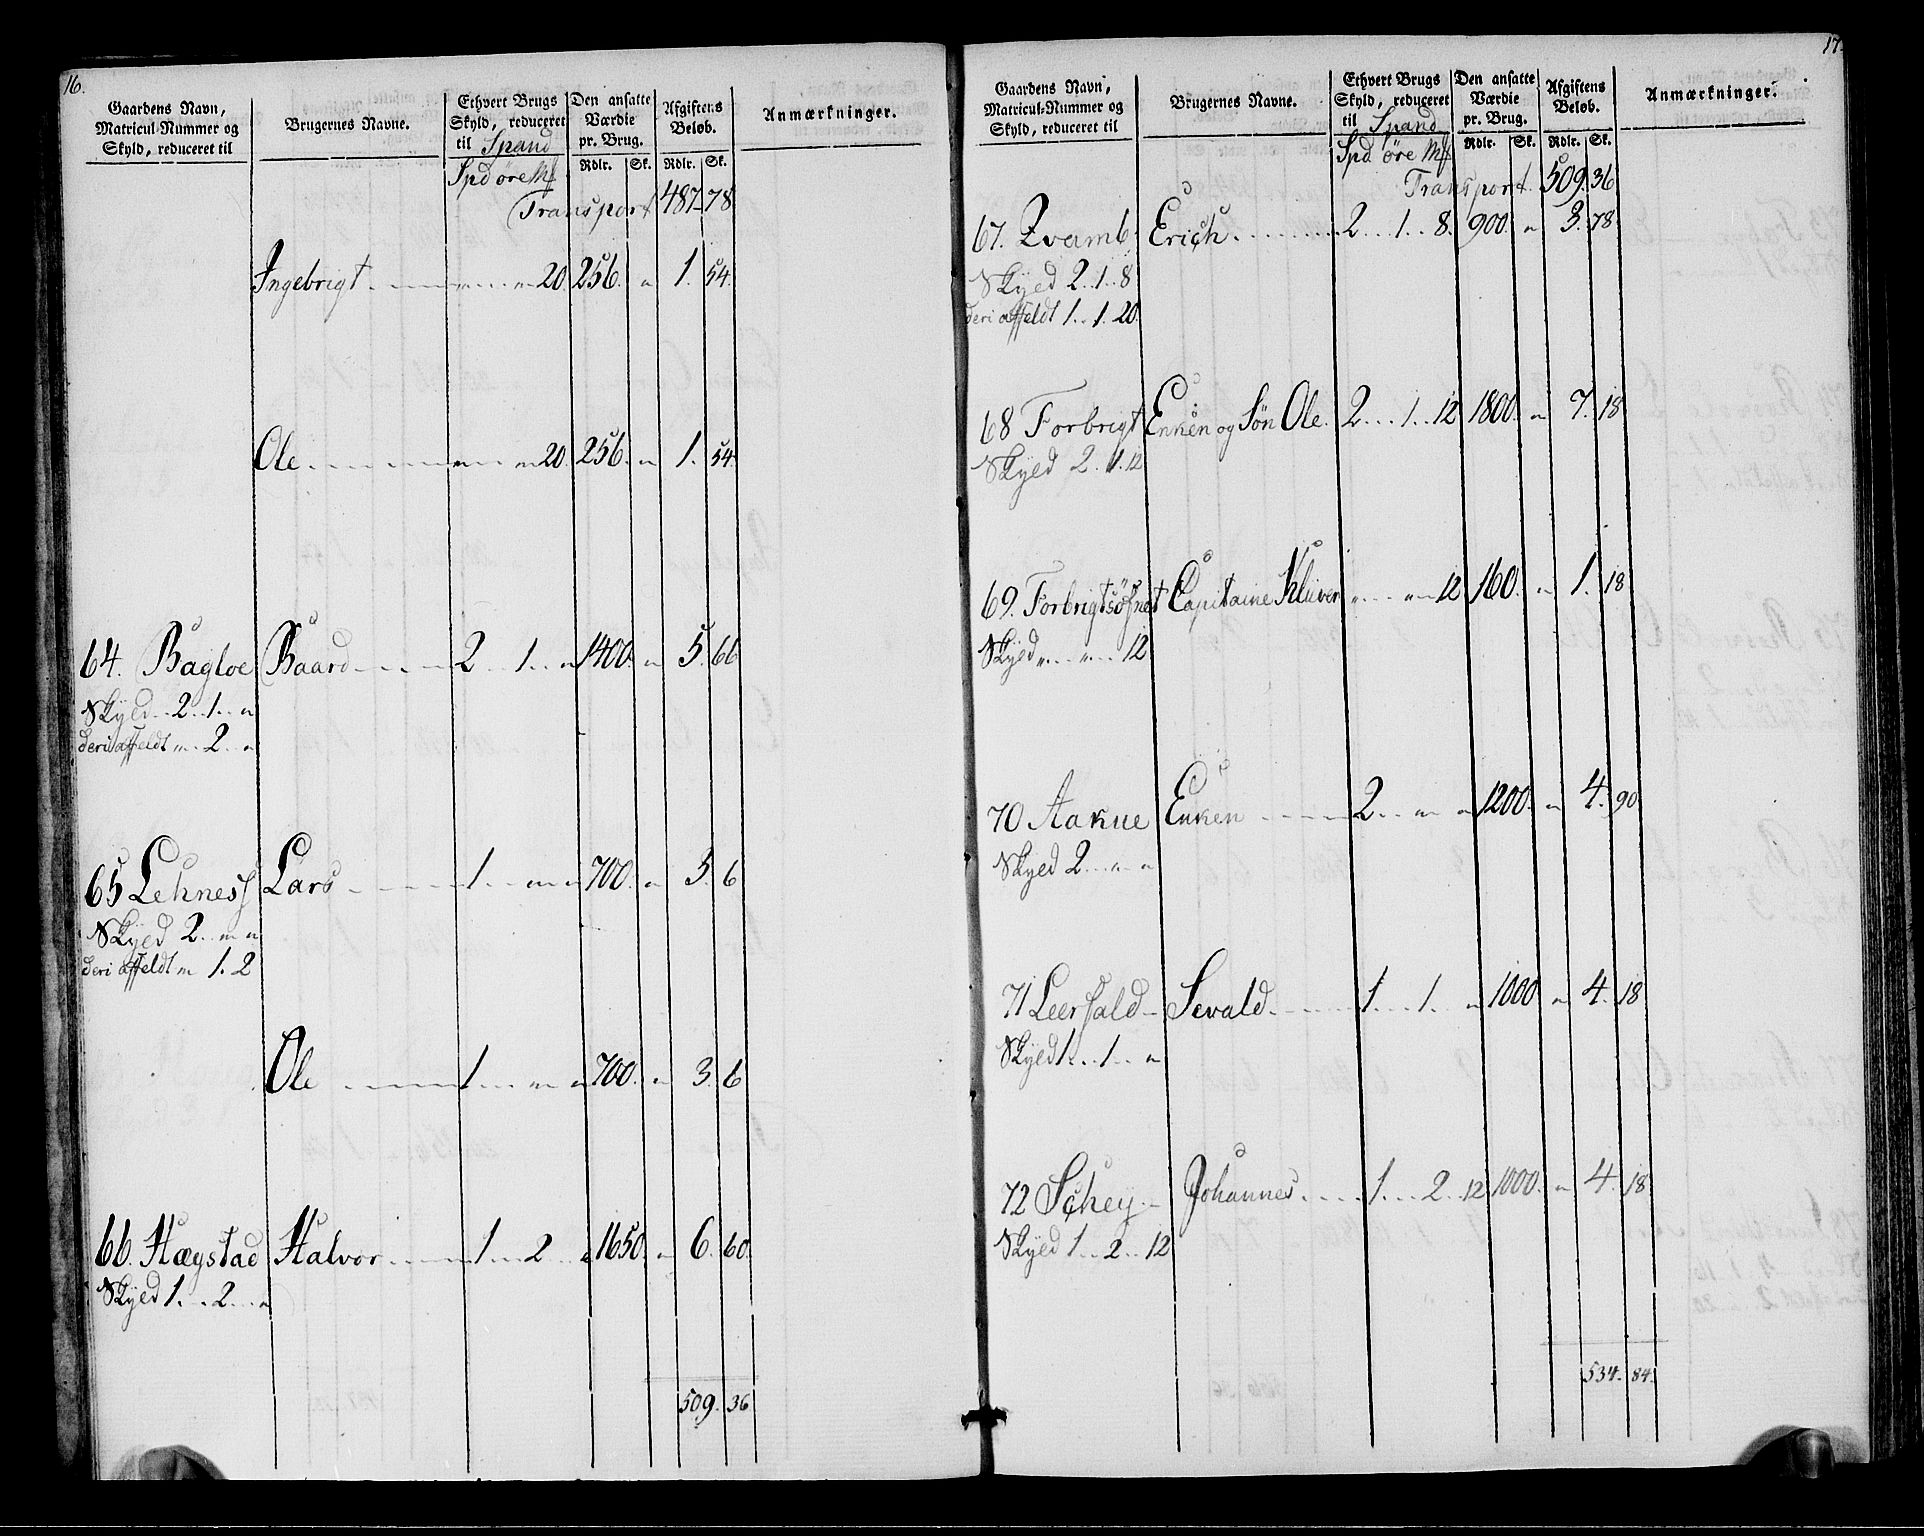 16.
Gaardens Navn, Matricul-Nummer og Skyld, reduceret til
Brugernes Navne.
Ethvert Brugs Skyld, reduceret til Spand
Den ansatte Værdie pr. Brug.
Afgiftens Beløb.
Anmærkninger.
Spd øre Mk
Rdlr. Sk. Rdlr. Sk.
Transport 487. 78
Ingebrigt . . . . . . 20. 256. " 1. 54.
Ole . . . . . . 20. 256. " 1. 54.
64. Bagloe Baard . . . . 2 . . 1 . . " 1400. " 5. 66
Skyld . . 2 . . 1 . . "
deri affeldt " . . 2 . . "
65 Lehness Lars . . . . 1 . . " " 700. " 3. 6
Skyld 2 . . " "
deri affeldt " 1. 2
Ole . . . . 1 . . " " 700. " 3. 6
66. Hægstad Halvor . . . . 1 . . 2 . . " 1650. " 6. 60.
Skyld 1 . . 2 . . "
509. 36
17.
Gaardens Navn, Matricul-Nummer og Skyld, reduceret til
Brugernes Navne.
Ethvert Brugs Skyld, reduceret til Spand
Den ansatte Værdie pr. Brug.
Afgiftens Beløb.
Anmærkninger.
Spd øre Mk
Rdlr. Sk. Rdlr. Sk.
Transport. 509. 36
67. Qvamb. Erich . . . . 2 . . 1 . . 8. 900. " 3. 78
Skyld 2 . . 1 . . 8
deri affeldt 1 . . 1. 20.
68 Forbrigt Enken og Søn Ole. 2 . . . 1 . . 12 1800. " 7. 18
Skyld 2. 1. 12
69. Forbrigtsøfnet Capitaine Klüver " . . . " 12 160. " 1. 18
Skyld " . . . " . . . 12
70 Aakue Enken . . . . 2 . . " " 1200. " 4. 90.
Skyld 2 . . " "
71 Leersald Sevald . . . . 1 . . . 1 . . " 1000 " 4. 18
Skyld 1 . . . 1 . . "
72 Schey Johannes . . . . 1 . . . 2 . . 12 1000. " 4. 18
Skyld 1 . . 2 . . 12
534. 84.